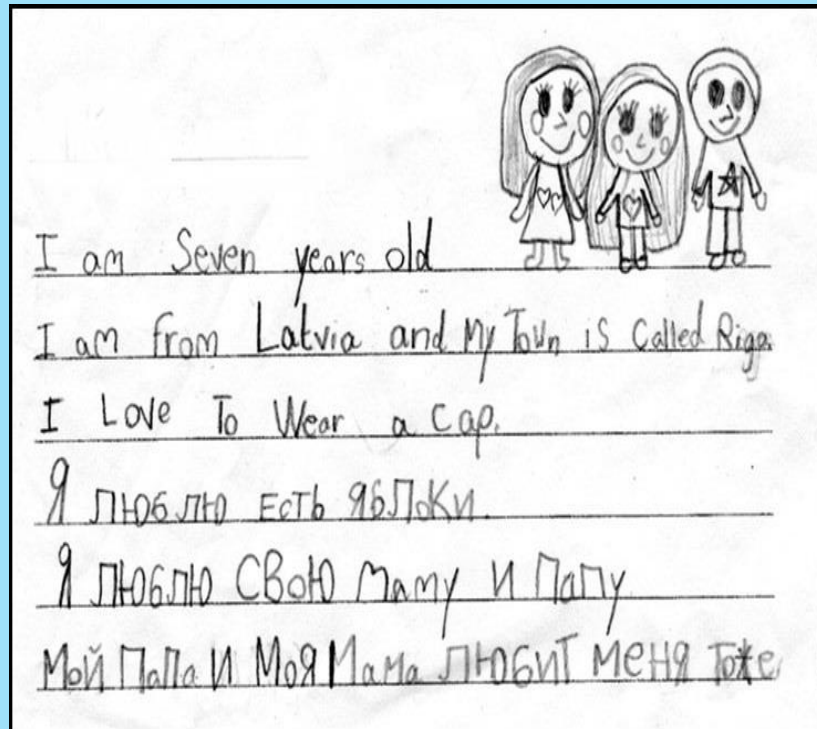 I am Seven years old
I am from Latvia and My Town is Called Riga.
I Love To Wear a Cap.
Я люблю есть яблоки.
Я люблю свою маму и папу
Мой папа и моя мама любит меня тоже